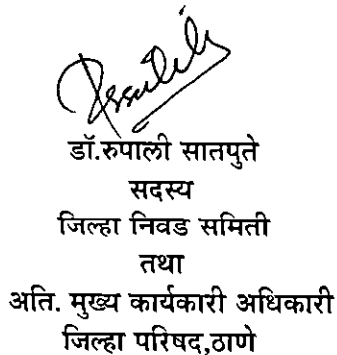 डॉ.रुपाली सातपुते
सदस्य
जिल्हा निवड समिती
तथा
अति. मुख्य कार्यकारी अधिकारी
जिल्हा परिषद,ठाणे